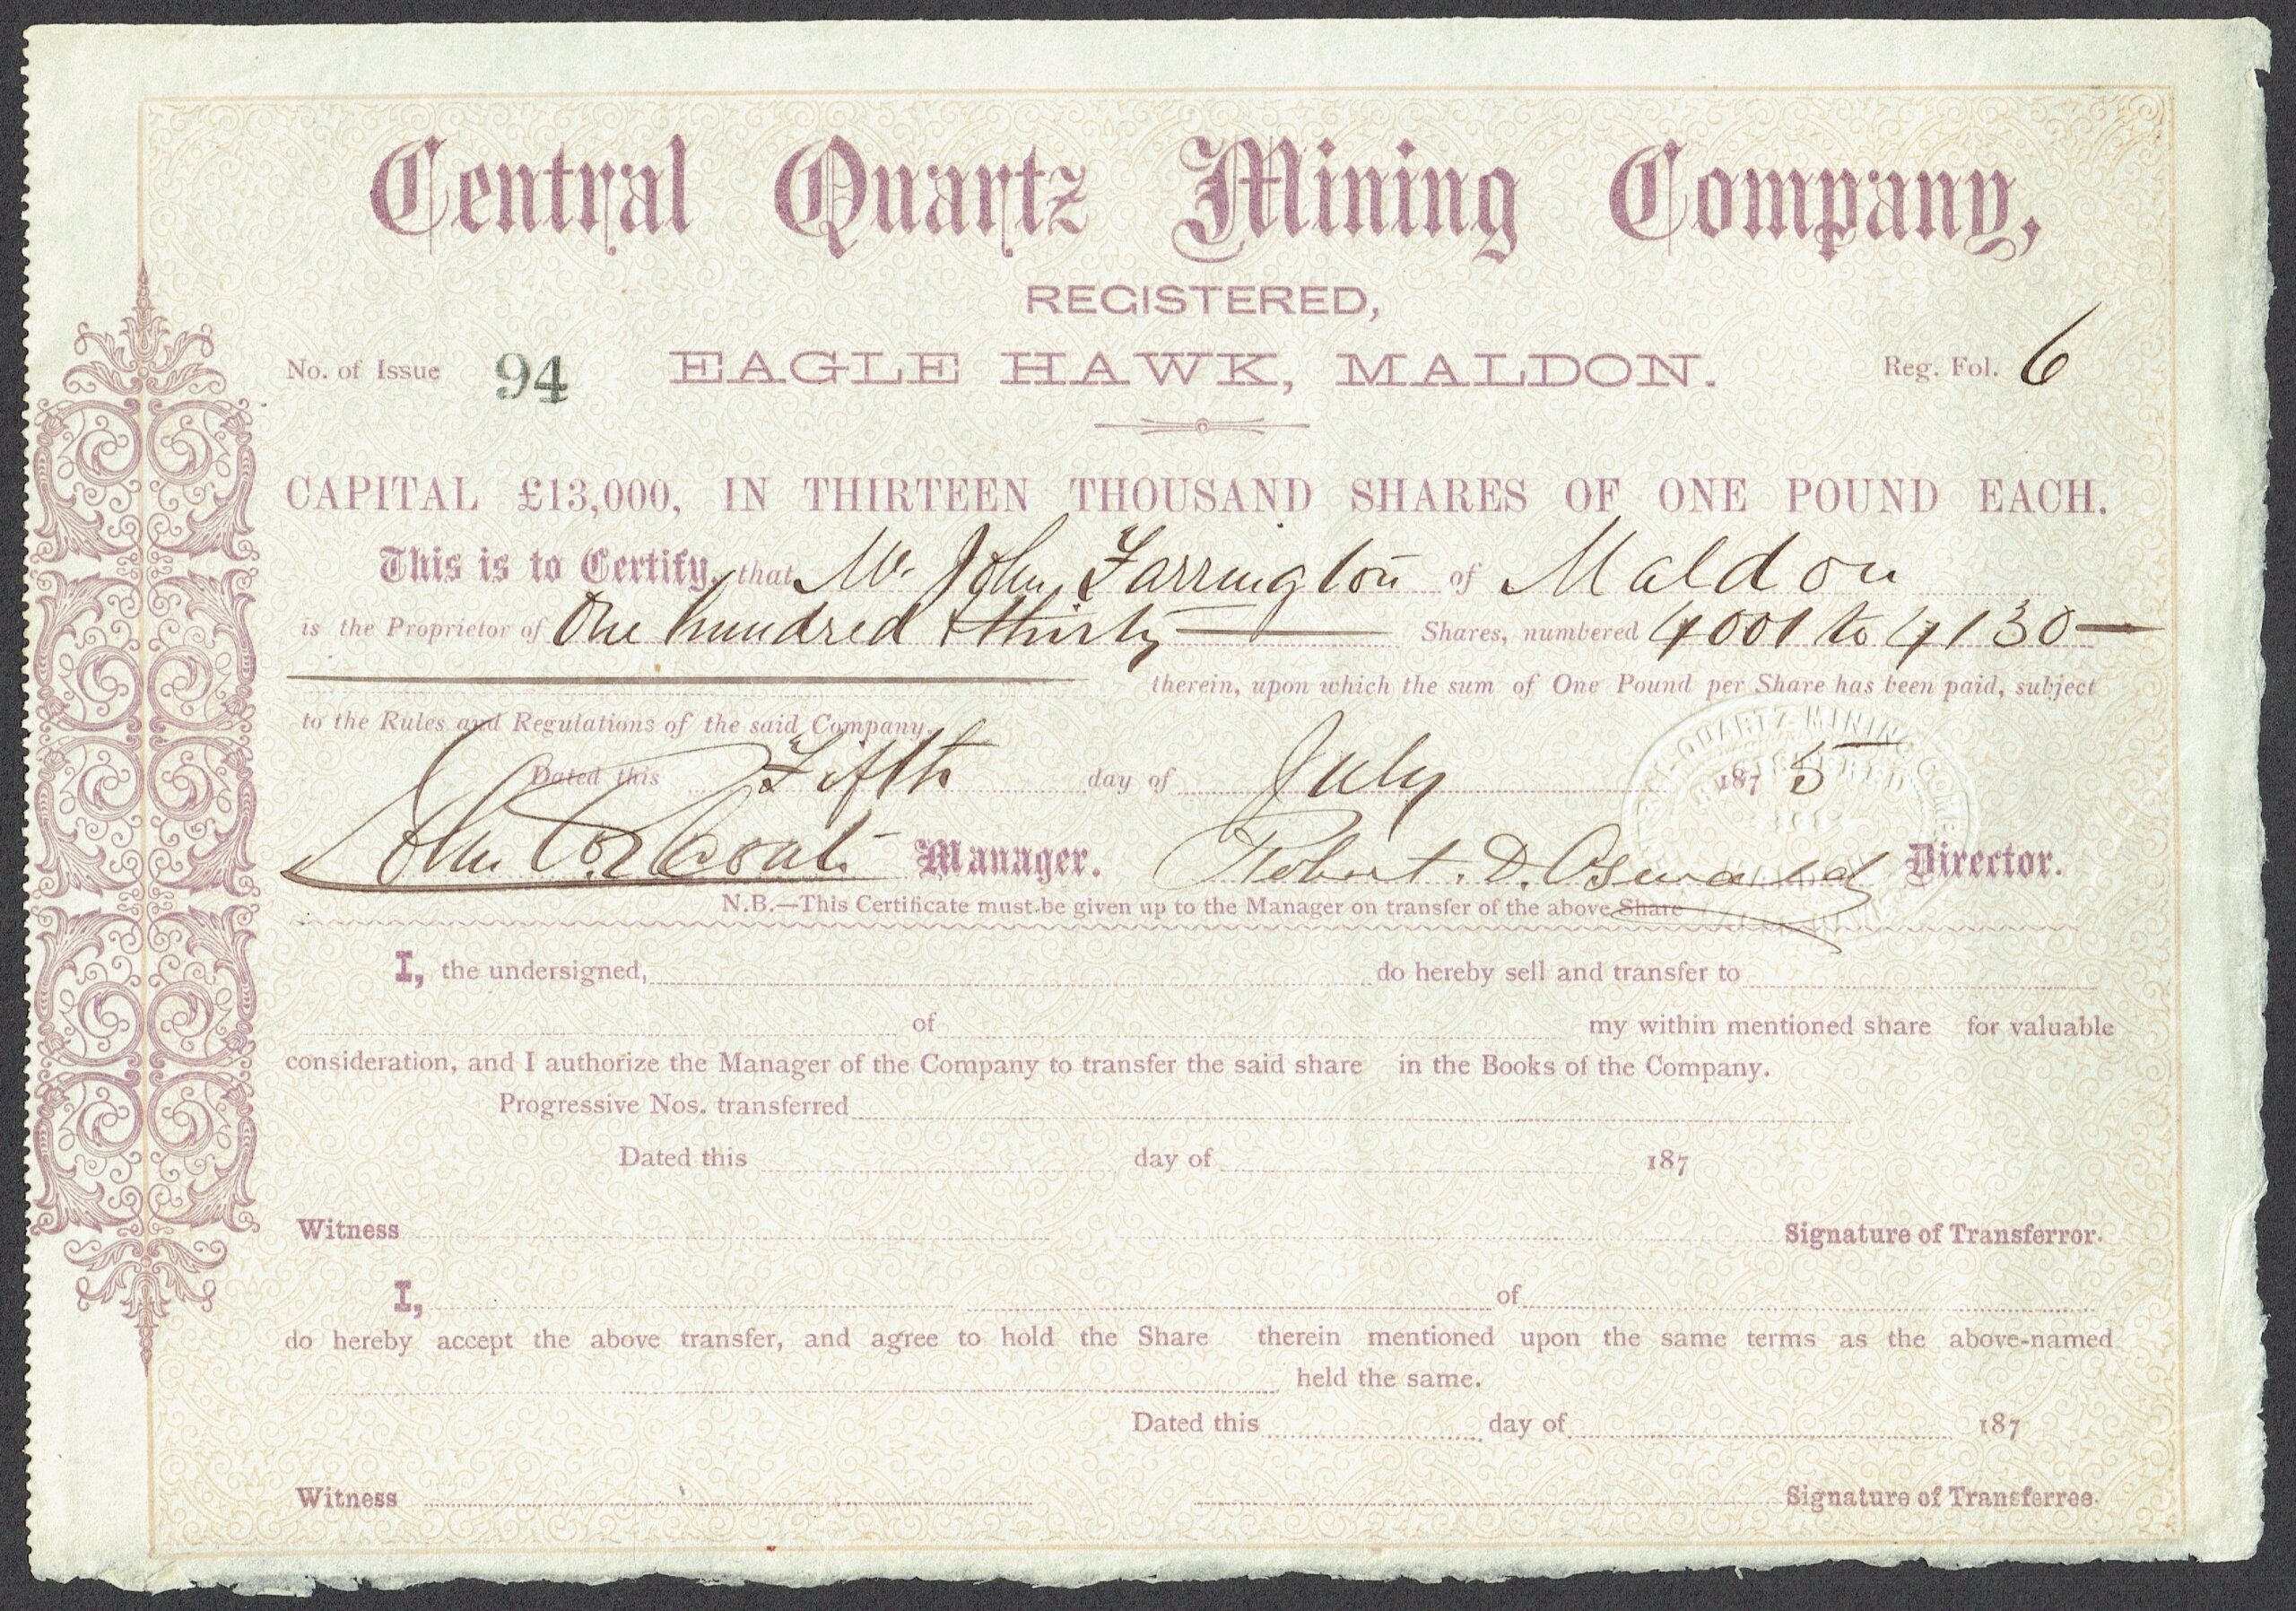 Central Quartz Mining Company,
REGISTERED,
No. of Issue 94 EAGLE HAWK, MALDON. Reg. Fol. 6
CAPITAL £13,000, IN THIRTEEN THOUSAND SHARES OF ONE POUND EACH.
This is to Certify, that Mr. John Farrington of Maldon
is the Proprietor of One hundred & thirty Shares, numbered 4001 to 4130
therein, upon which the sum of One Pound per Share has been paid, subject
to the Rules and Regulations of the said Company.
Dated this Fifth day of July 1875
John Manager. Robert. D. Oswald Director.
N.B.—This Certificate must be given up to the Manager on transfer of the above Share
I, the undersigned, do hereby sell and transfer to
of my within mentioned share for valuable
consideration, and I authorize the Manager of the Company to transfer the said share in the Books of the Company.
Progressive Nos. transferred
Dated this day of 187
Witness Signature of Transferror.
I, of
do hereby accept the above transfer, and agree to hold the Share therein mentioned upon the same terms as the above-named
held the same.
Dated this day of 187
Witness Signature of Transferree.
QUARTZ MINING COMP
REGISTERED